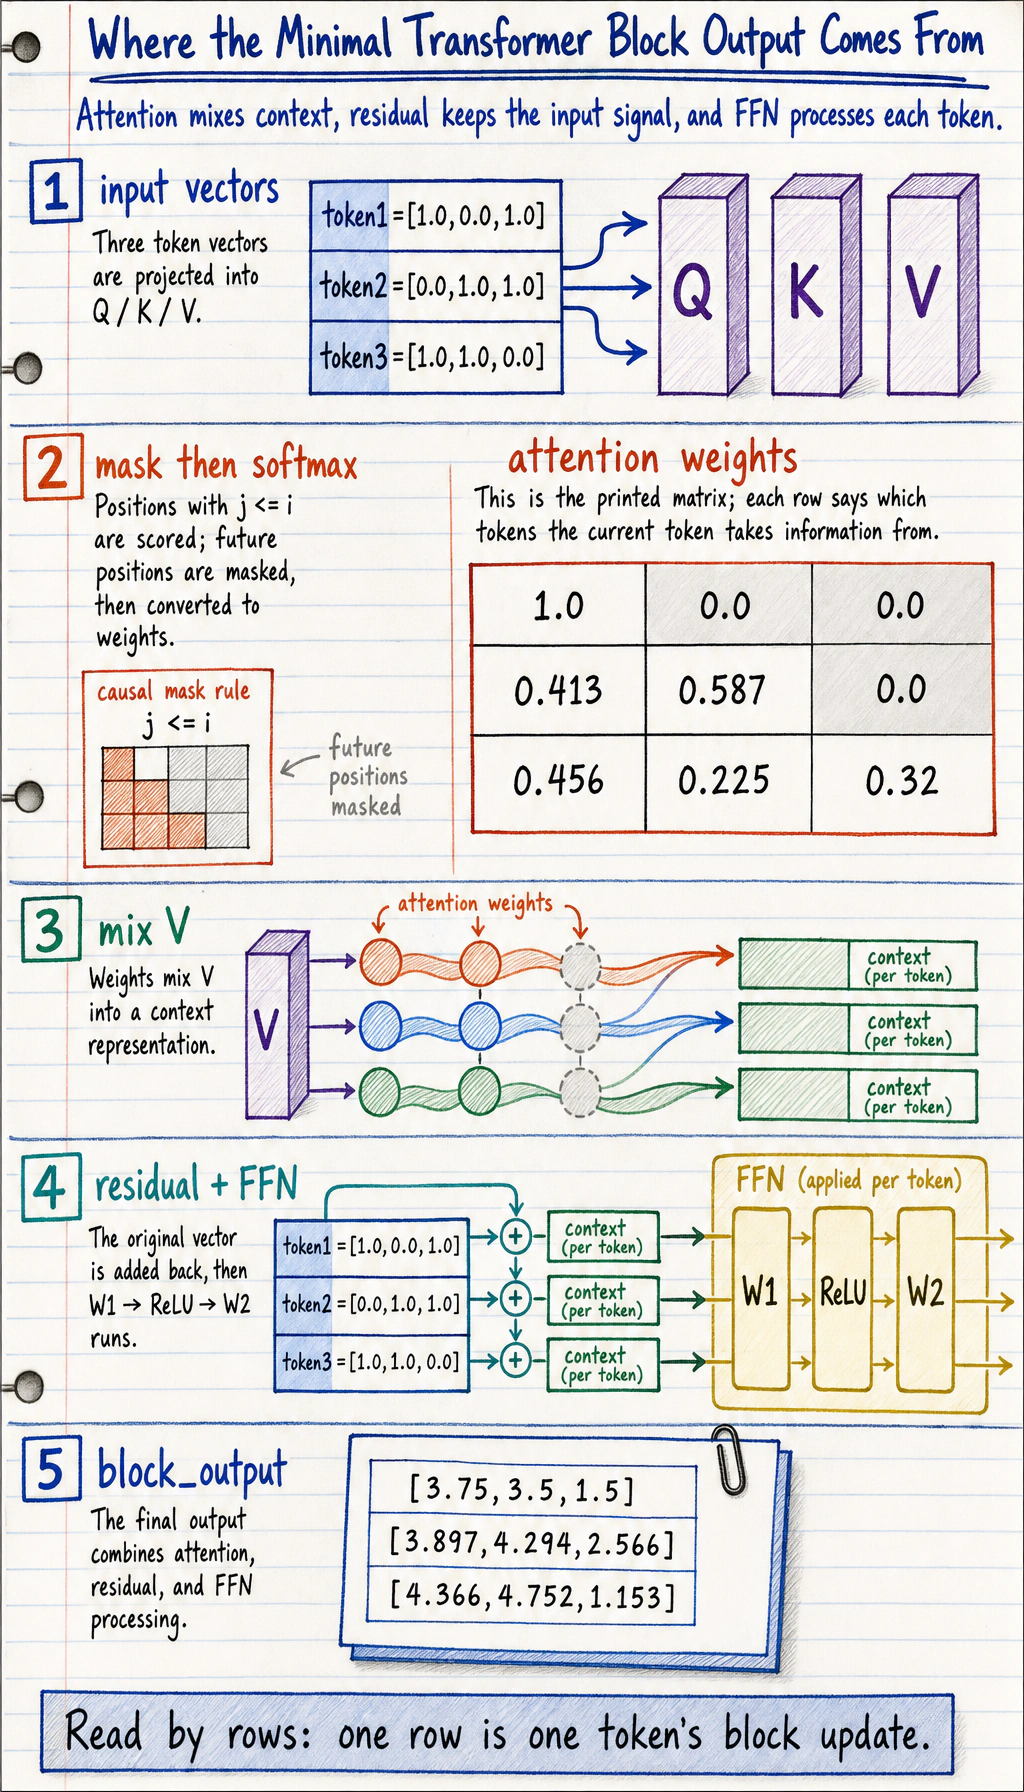 Where the Minimal Transformer Block Output Comes From
Attention mixes context, residual keeps the input signal, and FFN processes each token.
1 input vectors
Three token vectors
are projected into
Q / K / V.
token1 =[1.0, 0.0, 1.0]
token2 =[0.0, 1.0, 1.0]
token3 =[1.0, 1.0, 0.0]
Q K V
2 mask then softmax
Positions with j <= i
are scored; future
positions are masked,
then converted to
weights.
causal mask rule
j <= i
future
positions
masked
attention weights
This is the printed matrix; each row says which
tokens the current token takes information from.
1.0 0.0 0.0
0.413 0.587 0.0
0.456 0.225 0.32
3 mix V
Weights mix V
into a context
representation.
attention weights
V
context
(per token)
context
(per token)
context
(per token)
4 residual + FFN
The original vector
is added back, then
W1 → ReLU → W2
runs.
token1 =[1.0, 0.0, 1.0]
token2 =[0.0, 1.0, 1.0]
token3 =[1.0, 1.0, 0.0]
+
+
+
context
(per token)
context
(per token)
context
(per token)
FFN (applied per token)
W1 ReLU W2
5 block_output
The final output
combines attention,
residual, and FFN
processing.
[3.75, 3.5, 1.5]
[3.897, 4.294, 2.566]
[4.366, 4.752, 1.153]
Read by rows: one row is one token's block update.